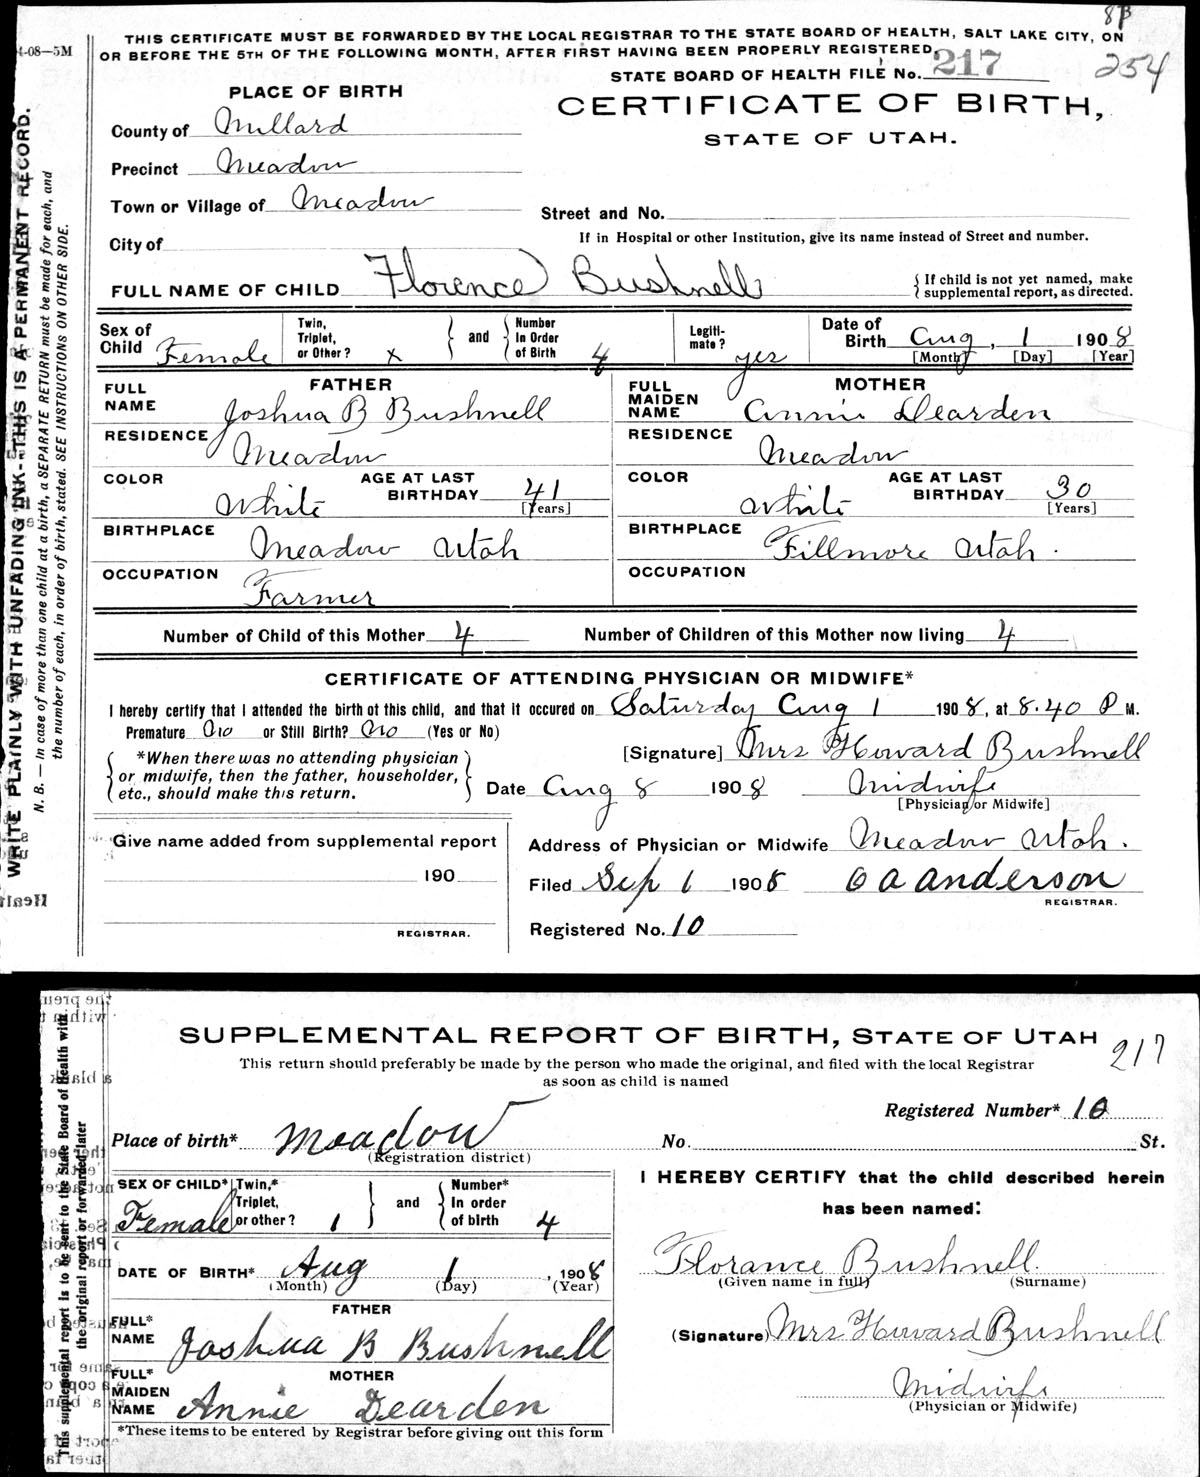 8B
4-08—5M
THIS CERTIFICATE MUST BE FORWARDED BY THE LOCAL REGISTRAR TO THE STATE BOARD OF HEALTH, SALT LAKE CITY, ON
OR BEFORE THE 5TH OF THE FOLLOWING MONTH, AFTER FIRST HAVING BEEN PROPERLY REGISTERED.
STATE BOARD OF HEALTH FILE No. 217
254
PLACE OF BIRTH
CERTIFICATE OF BIRTH,
STATE OF UTAH.
County of Millard
Precinct Meadow
Town or Village of Meadow
Street and No.
City of
If in Hospital or other Institution, give its name instead of Street and number.
FULL NAME OF CHILD Florence Bushnell
{ If child is not yet named, make
supplemental report, as directed.
Sex of Child Female
Twin, Triplet, or Other? x
and
Number In Order of Birth 4
Legiti-mate? yes
Date of Birth Aug, 1 1908
[Month] [Day] [Year]
FATHER
FULL NAME Joshua B Bushnell
RESIDENCE Meadow
COLOR White
AGE AT LAST BIRTHDAY 41
[Years]
BIRTHPLACE Meadow Utah
OCCUPATION Farmer
MOTHER
FULL MAIDEN NAME Annie Dearden
RESIDENCE Meadow
COLOR White
AGE AT LAST BIRTHDAY 30
[Years]
BIRTHPLACE Fillmore Utah.
OCCUPATION
Number of Child of this Mother 4
Number of Children of this Mother now living 4
CERTIFICATE OF ATTENDING PHYSICIAN OR MIDWIFE*
I hereby certify that I attended the birth of this child, and that it occured on Saturday Aug 1 1908, at 8.40 P M.
Premature No or Still Birth? No (Yes or No)
*When there was no attending physician
or midwife, then the father, householder,
etc., should make this return.
[Signature] Mrs Howard Bushnell
Date Aug 8 1908 Midwife
[Physician or Midwife]
Give name added from supplemental report
190
REGISTRAR.
Address of Physician or Midwife Meadow Utah.
Filed Sep 1 1908 O A Anderson
REGISTRAR.
Registered No. 10
WRITE PLAINLY WITH UNFADING INK—THIS IS A PERMANENT RECORD.
N. B. — In case of more than one child at a birth, a SEPARATE RETURN must be made for each, and
the number of each, in order of birth, stated. SEE INSTRUCTIONS ON OTHER SIDE.
SUPPLEMENTAL REPORT OF BIRTH, STATE OF UTAH
217
This return should preferably be made by the person who made the original, and filed with the local Registrar
as soon as child is named
Registered Number* 10
Place of birth* Meadow No. St.
(Registration district)
SEX OF CHILD* Female
Twin,* Triplet, or other? 1
and
Number* In order of birth 4
DATE OF BIRTH* Aug 1, 1908
(Month) (Day) (Year)
FATHER
FULL* NAME Joshua B Bushnell
MOTHER
FULL* MAIDEN NAME Annie Dearden
*These items to be entered by Registrar before giving out this form
I HEREBY CERTIFY that the child described herein
has been named:
Florance Bushnell.
(Given name in full) (Surname)
(Signature) Mrs Howard Bushnell
Midwife
(Physician or Midwife)
This supplemental report is to be sent to the State Board of Health with
the original report or forwarded later